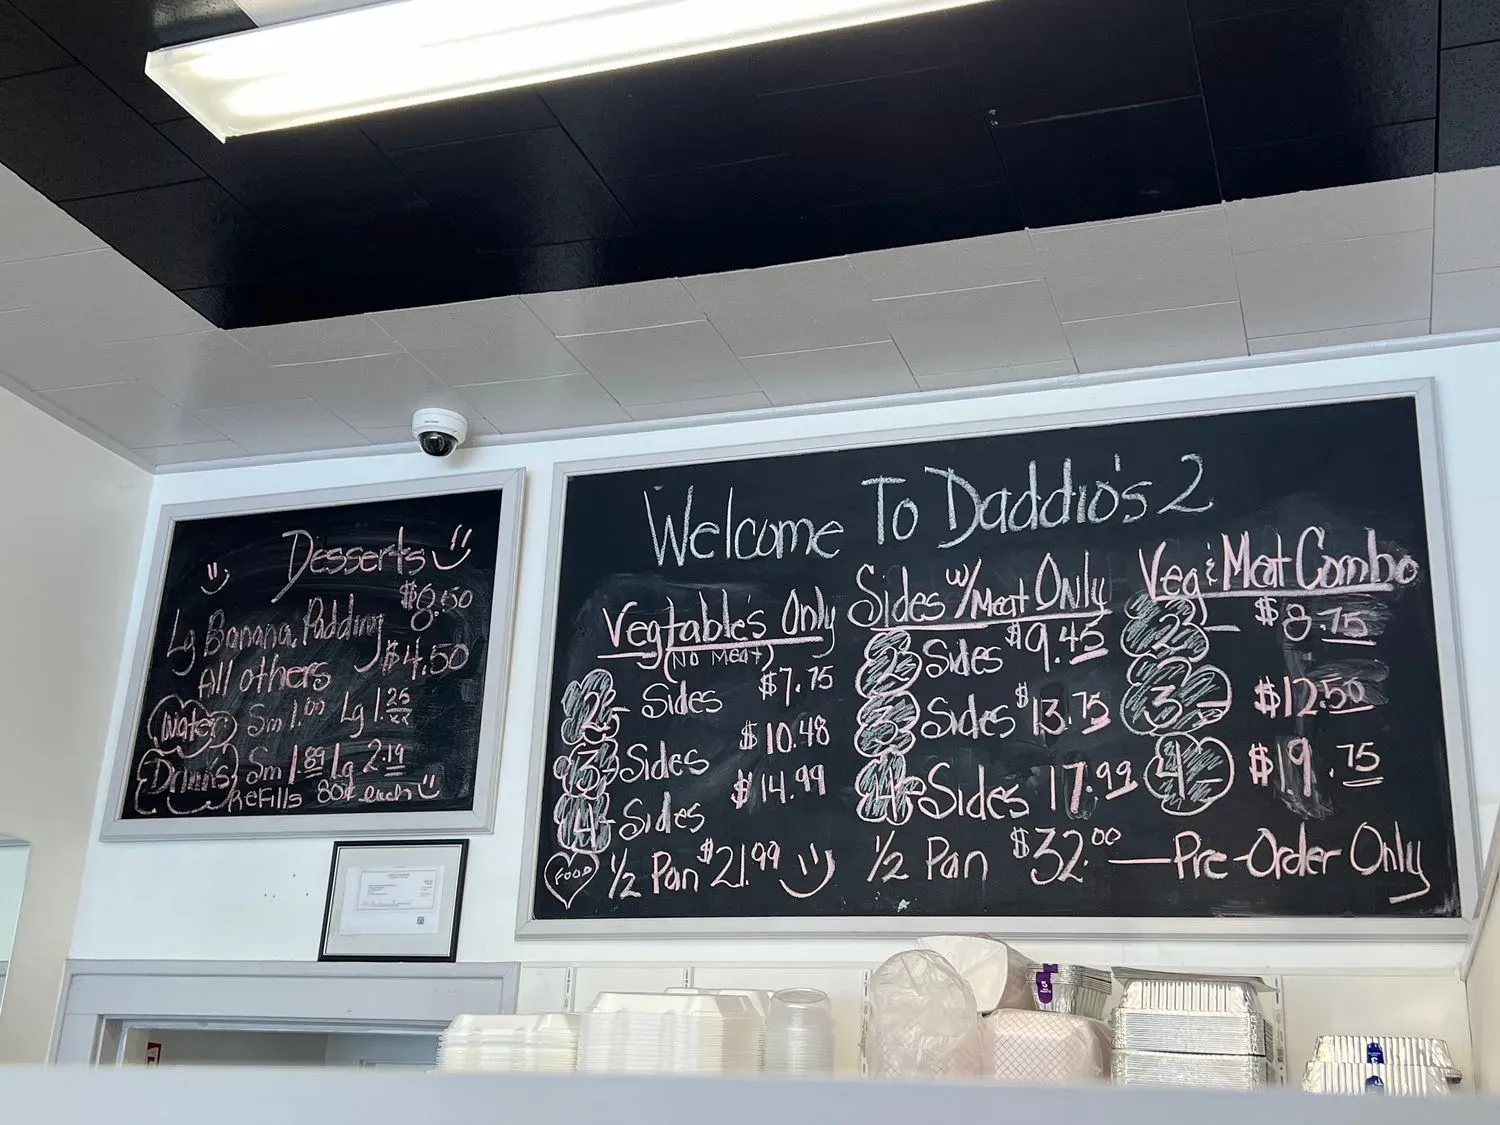 Desserts
$8.50
Lg Banana Pudding
All others $4.50
Water Sm 1.00 Lg 1.25
Drinks Sm 1.89 Lg 2.19
Refills 80¢ each
Welcome To Daddio's 2
Vegtable's Only
(No Meat)
2 - Sides $7.75
3 Sides $10.48
4 - Sides $14.99
FOOD 1/2 Pan $21.99
Sides w/Meat Only
2 Sides $9.45
3 Sides $13.75
4 - Sides 17.99
1/2 Pan $32.00 — Pre-Order Only
Veg & Meat Combo
2 - $8.75
3 - $12.50
4 - $19.75